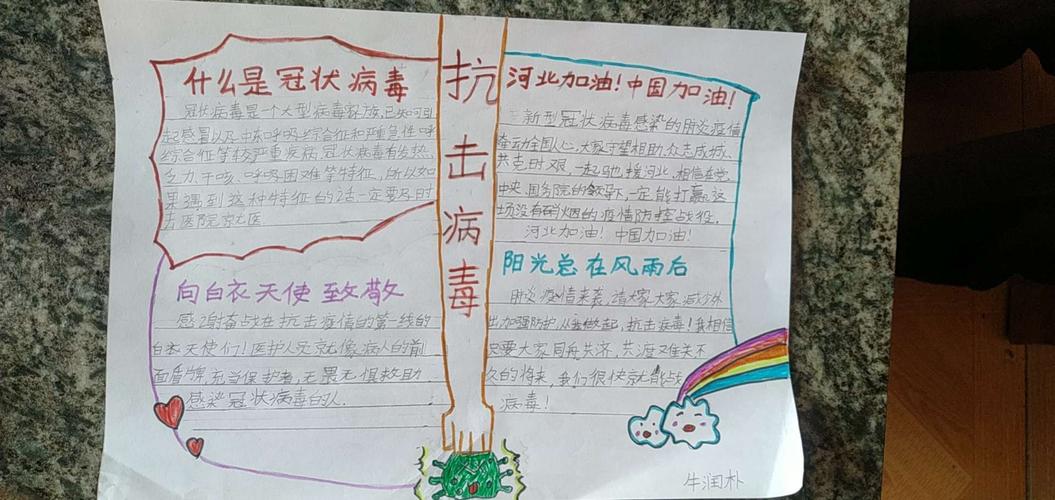 抗击病毒
什么是冠状病毒
冠状病毒是一个大型病毒家族,已知可引
起感冒以及中东呼吸综合征和严重急性呼
综合征等较严重疾病,冠状病毒有发热、
乏力干咳、呼吸困难等特征,所以如
果遇到这种特征的话一定要及时
去医院就医
向白衣天使致敬
感谢奋战在抗击疫情的第一线的
白衣天使们!医护人员就像病人的前
面盾牌,充当保护者,无畏无惧救助
感染冠状病毒的人.
河北加油!中国加油!
新型冠状病毒感染的肺炎疫情
牵动全国人心,大家守望相助,众志成城、
共克时艰,一起驰援河北,相信在党
中央、国务院的领导下,一定能打赢这
场没有硝烟的疫情防控战役。
河北加油!中国加油!
阳光总在风雨后
肺炎疫情来袭,请大家大家减少外
出加强防护,从我做起,抗击病毒!我相信
只要大家同舟共济,共渡难关不
久的将来,我们很快就能战
病毒!
牛润朴